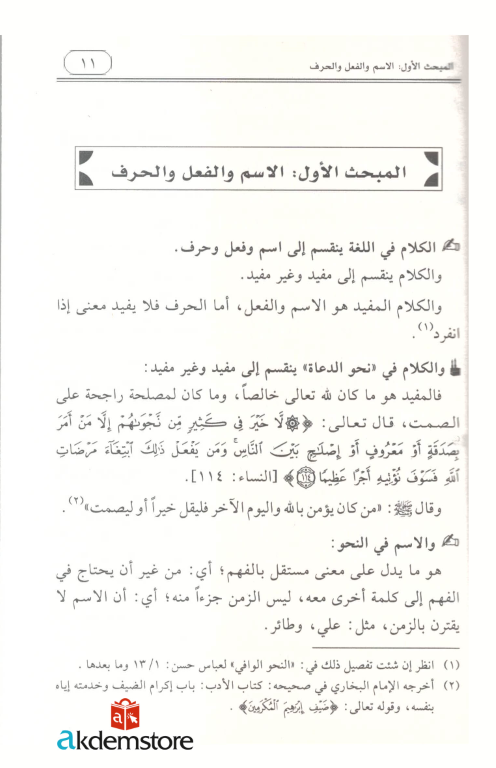 المبحث الأول: الاسم والفعل والحرف
١١
المبحث الأول: الاسم والفعل والحرف
الكلام في اللغة ينقسم إلى اسم وفعل وحرف.
والكلام ينقسم إلى مفيد وغير مفيد.
والكلام المفيد هو الاسم والفعل، أما الحرف فلا يفيد معنى إذا
انفرد(١).
والكلام في «نحو الدعاة» ينقسم إلى مفيد وغير مفيد:
فالمفيد هو ما كان لله تعالى خالصاً، وما كان لمصلحة راجحة على
الصمت، قال تعالى: ﴿۞لَّا خَيْرَ فِي كَثِيرٍ مِّن نَّجْوَىٰهُمْ إِلَّا مَنْ أَمَرَ
بِصَدَقَةٍ أَوْ مَعْرُوفٍ أَوْ إِصْلَٰحٍۭ بَيْنَ ٱلنَّاسِۚ وَمَن يَفْعَلْ ذَٰلِكَ ٱبْتِغَآءَ مَرْضَاتِ
ٱللَّهِ فَسَوْفَ نُؤْتِيهِ أَجْرًا عَظِيمًا ١١٤﴾ [النساء: ١١٤].
وقال ﷺ: «من كان يؤمن بالله واليوم الآخر فليقل خيراً أو ليصمت»(٢).
والاسم في النحو:
هو ما يدل على معنى مستقل بالفهم؛ أي: من غير أن يحتاج في
الفهم إلى كلمة أخرى معه، ليس الزمن جزءاً منه؛ أي: أن الاسم لا
يقترن بالزمن، مثل: علي، وطائر.
(١) انظر إن شئت تفصيل ذلك في: «النحو الوافي» لعباس حسن: ١٣/١ وما بعدها .
(٢) أخرجه الإمام البخاري في صحيحه: كتاب الأدب: باب إكرام الضيف وخدمته إياه
بنفسه، وقوله تعالى: ﴿ضَيْفِ إِبْرَٰهِيمَ ٱلْمُكْرَمِينَ﴾ .
akdemstore